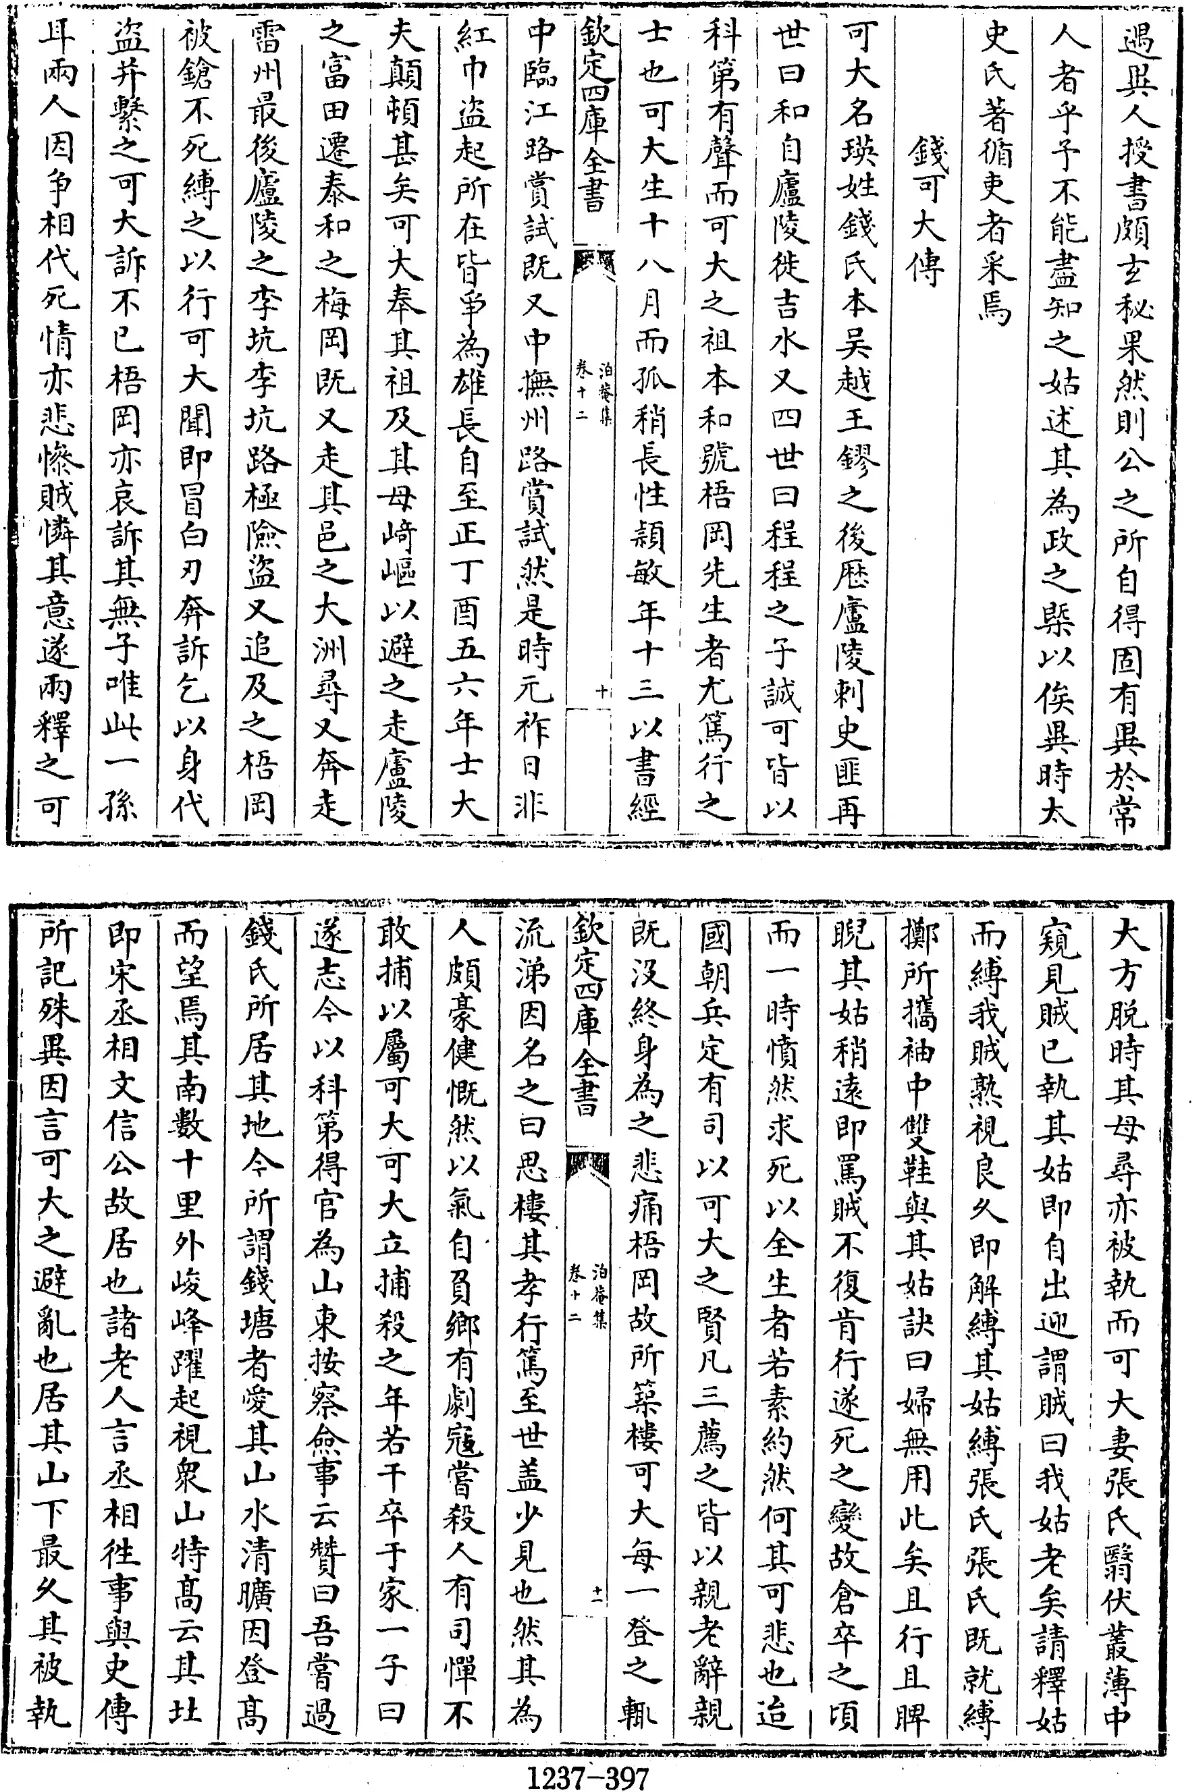 遇異人授書頗玄秘果然則公之所自得固有異於常
人者乎予不能盡知之姑述其為政之槩以俟異時太
史氏著循吏者采焉
錢可大傳
可大名瑛姓錢氏本吴越王鏐之後歴廬陵刺史匪再
世曰和自廬陵徙吉水又四世曰程程之子誠可皆以
科第有聲而可大之祖本和號梧岡先生者尤篤行之
士也可大生十八月而孤稍長性頴敏年十三以書經
欽定四庫全書
泊菴集
卷十二
十
中臨江路賞試既又中撫州路賞試然是時元祚日非
紅巾盗起所在皆爭為雄長自至正丁酉五六年士大
夫顛頓甚矣可大奉其祖及其母﨑嶇以避之走廬陵
之富田遷泰和之梅岡既又走其邑之大洲尋又奔走
雷州最後廬陵之李坑李坑路極險盜又追及之梧岡
被鎗不死縛之以行可大聞即冒白刃奔訴乞以身代
盜并繫之可大訴不已梧岡亦哀訴其無子唯此一孫
耳兩人因争相代死情亦悲慘賊憐其意遂兩釋之可
大方脱時其母尋亦被執而可大妻張氏翳伏叢薄中
窺見賊已執其姑即自出迎謂賊曰我姑老矣請釋姑
而縛我賊熟視良久即解縛其姑縛張氏張氏既就縛
擲所攜袖中雙鞋與其姑訣曰婦無用此矣且行且睥
睨其姑稍遠即罵賊不復肯行遂死之變故倉卒之頃
而一時憤然求死以全生者若素約然何其可悲也迨
國朝兵定有司以可大之賢凡三薦之皆以親老辭親
既没終身為之悲痛梧岡故所築樓可大每一登之輒
欽定四庫全書
泊菴集
卷十二
十一
流涕因名之曰思樓其孝行篤至世盖少見也然其為
人頗豪健慨然以氣自負鄉有劇寇嘗殺人有司憚不
敢捕以屬可大可大立捕殺之年若干卒于家一子曰
遂志今以科第得官為山東按察僉事云贊曰吾嘗過
錢氏所居其地今所謂錢塘者愛其山水清曠因登高
而望焉其南數十里外峻峰躍起視衆山特髙云其址
即宋丞相文信公故居也諸老人言丞相徃事與史傳
所記殊異因言可大之避亂也居其山下最久其被執
1237-397